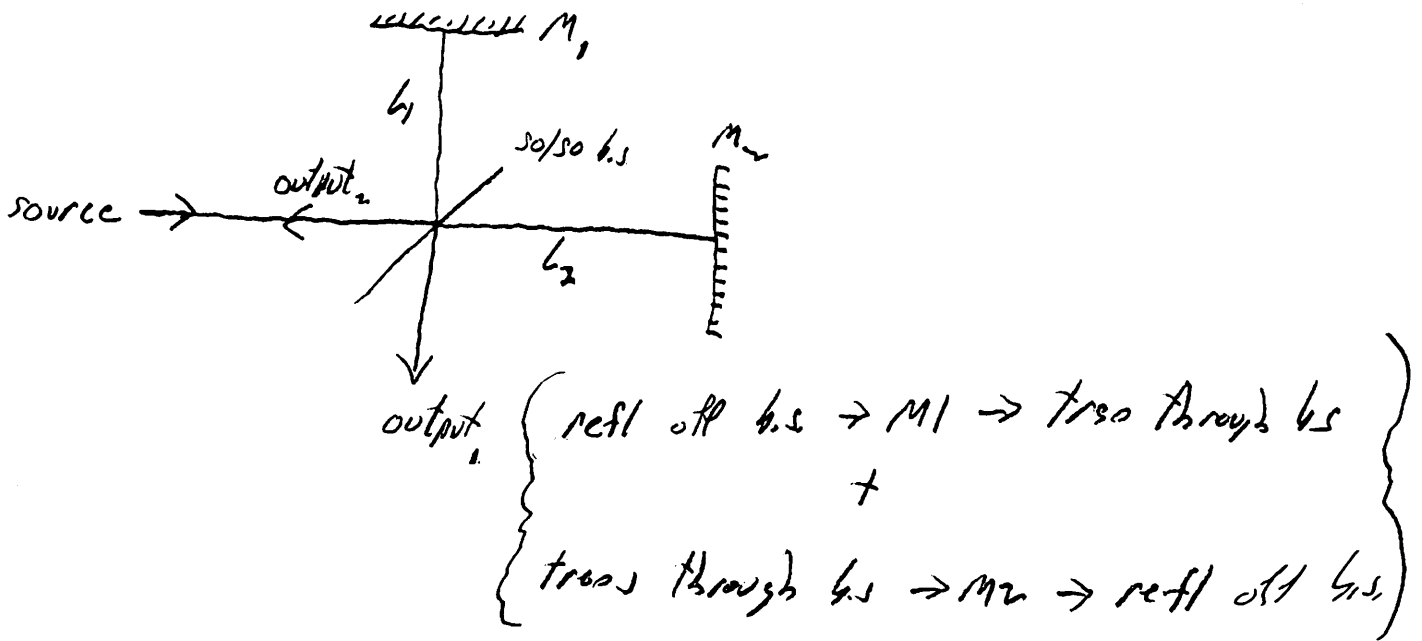 M₁
L₁
50/50 b.s
M₂
output₂
source
L₂
output₁
refl off b.s. → M1 → trso through bs
+
trsos through b.s → M2 → refl off b.s.